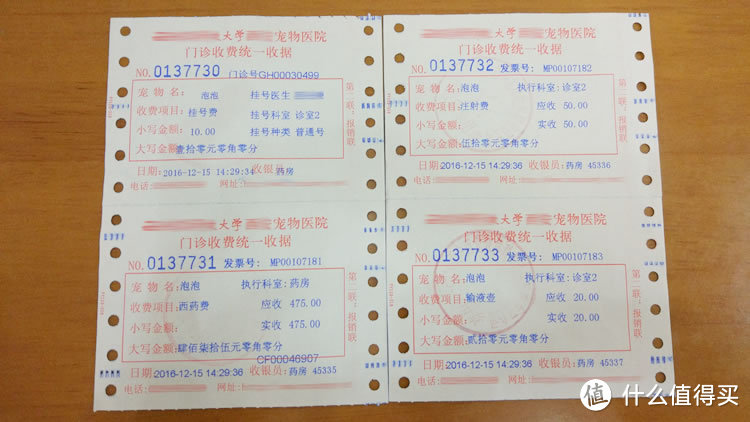 大学 宠物医院
门诊收费统一收据
NO. 0137730 门诊号GH00030499
宠 物 名: 泡泡 挂号医生
收费项目: 挂号费 挂号科室 诊室2
小写金额: 10.00 挂号种类 普通号
大写金额: 壹拾零元零角零分
日期: 2016-12-15 14:29:34 收银员: 药房
电话: 网址:
第二联: 报销联
大学 宠物医院
门诊收费统一收据
NO. 0137732 发票号: MP00107182
宠 物 名: 泡泡 执行科室: 诊室2
收费项目: 注射费 应收 50.00
小写金额: 实收 50.00
大写金额: 伍拾零元零角零分
日期: 2016-12-15 14:29:36 收银员: 药房 45336
电话: 网址:
第二联: 报销联
大学 宠物医院
门诊收费统一收据
NO. 0137731 发票号: MP00107181
宠 物 名: 泡泡 执行科室: 药房
收费项目: 西药费 应收 475.00
小写金额: 实收 475.00
大写金额: 肆佰柒拾伍元零角零分
CF00046907
日期: 2016-12-15 14:29:36 收银员: 药房 45335
电话: 网址:
第二联: 报销联
大学 宠物医院
门诊收费统一收据
NO. 0137733 发票号: MP00107183
宠 物 名: 泡泡 执行科室: 诊室2
收费项目: 输液壶 应收 20.00
小写金额: 实收 20.00
大写金额: 贰拾零元零角零分
日期: 2016-12-15 14:29:36 收银员: 药房 45337
电话: 网址:
第二联: 报销联
值 什么值得买